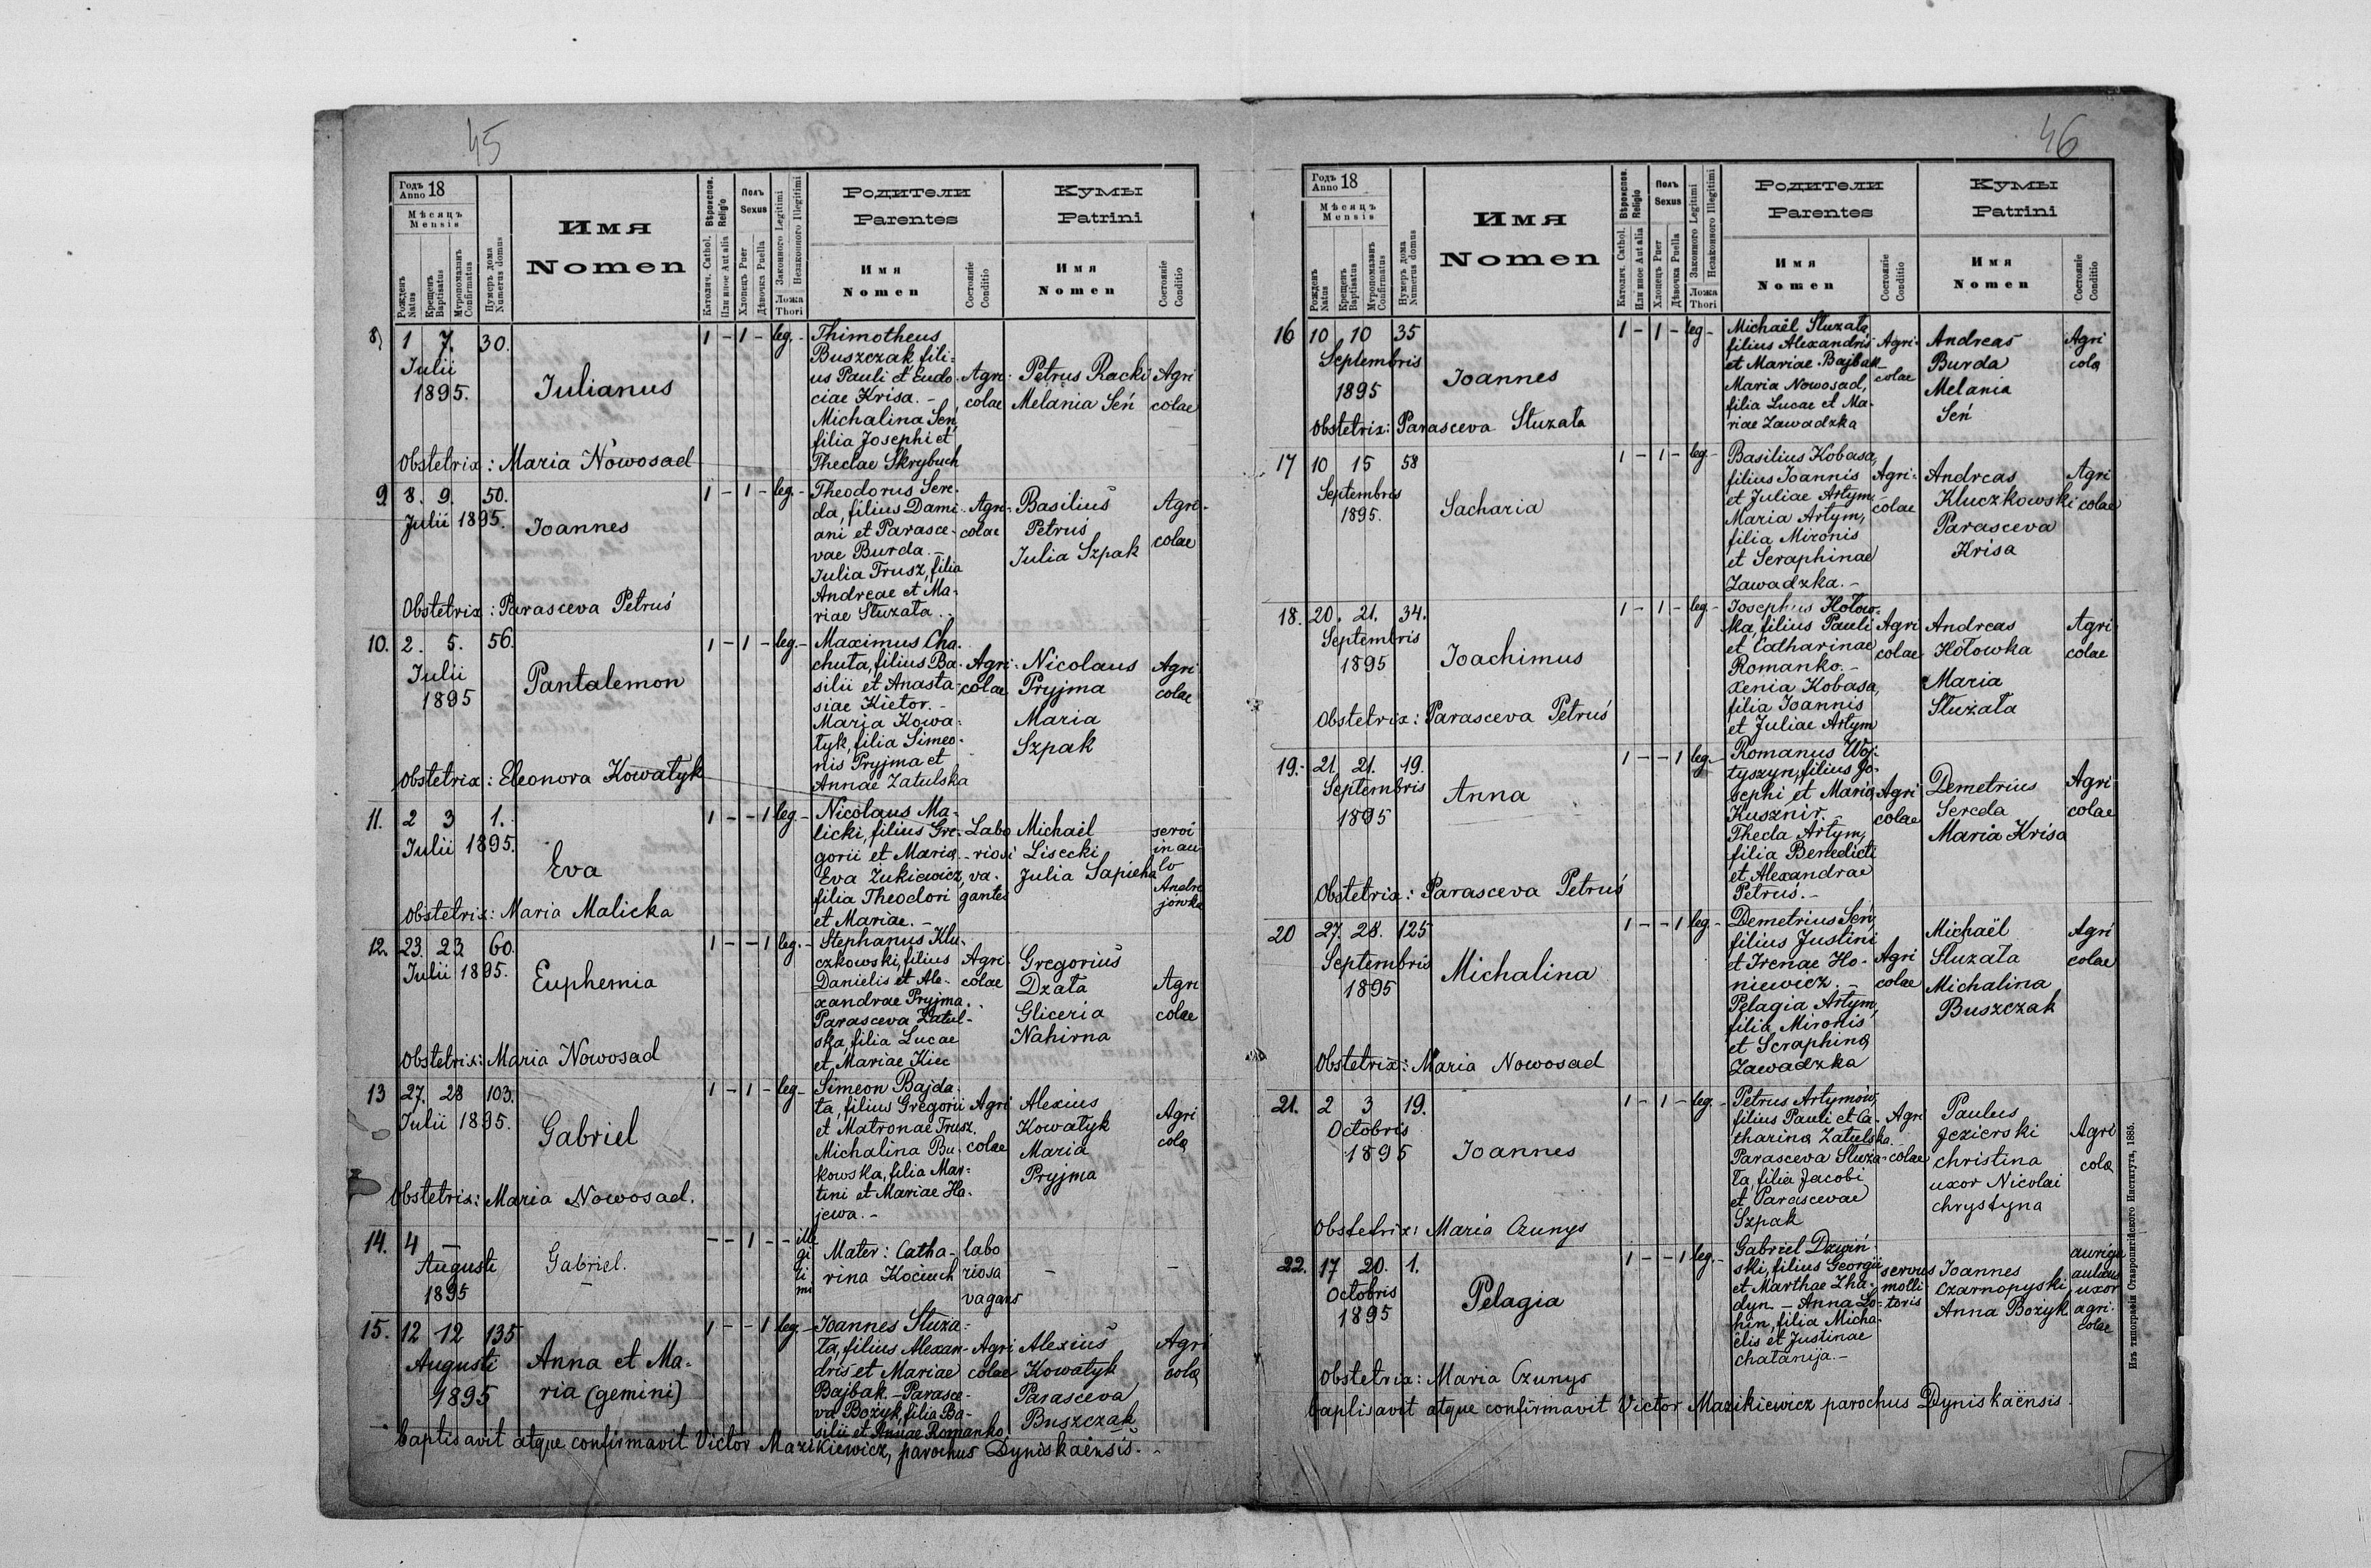 45
Годъ Anno 18
Мѣсяцъ
Mensis
Рожденъ Natus
Крещенъ Baptisatus
Мѵропомазанъ Confirmatus
Нумеръ дома Numerus domus
Имя
Nomen
Вѣроиспов. Religio
Католич. Cathol.
Или иное Aut alia
Полъ
Sexus
Хлопецъ Puer
Дѣвочка Puella
Законного Legitimi
Незаконного Illegitimi
Ложа
Thori
Родители
Parentes
Имя
Nomen
Состоянiе
Conditio
Кумы
Patrini
Имя
Nomen
Состоянiе
Conditio
8) 1 7. 30.
Julii
1895.
Julianus
1 - 1 - leg. -
Thimotheus
Buszczak fili-
us Pauli et Eudo-
ciae Krisa. -
Michalina Seń,
filia Josephi et
Theclae Skrybuch
Agri-
colae
Petrus Racki
Melania Seń
Agri
colae
Obstetrix: Maria Nowosad
9. 8. 9. 50.
Julii 1895.
Joannes
1 - 1 - leg. -
Theodorus Sere-
da, filius Dami-
ani et Parasce-
vae Burda. -
Julia Trusz, filia
Andreae et Ma-
riae Słuzała. -
Agri-
colae
Basilius
Petruś
Julia Szpak
Agri-
colae
Obstetrix: Parasceva Petruś
10. 2. 5. 56.
Julii
1895
Pantalemon
1 - 1 - leg. -
Maximus Cha-
chuta, filius Ba-
silii et Anasta-
siae Kietor. -
Maria Kowa-
łyk, filia Simeo-
nis Pryjma et
Annae Zatulska
Agri-
colae
Nicolaus
Pryjma
Maria
Szpak
Agri
colae
Obstetrix: Eleonora Kowałyk
11. 2 3 1.
Julii 1895.
Eva
1 - - 1 leg. -
Nicolaus Ma-
licki, filius Gre-
gorii et Maria
Eva Zukiewicz,
filia Theodori
et Mariae. -
Labo
riosi
va-
gantes
Michaël
Lisecki
Julia Sapieha
servi
in au-
lo
Andre
jowka
Obstetrix: Maria Malicka
12. 23. 23 60.
Julii 1895.
Euphemia
1 - - 1 leg. -
Stephanus Klu-
czkowski, filius
Danielis et Ale-
xandrae Pryjma.
Parasceva Zatul-
ska, filia Lucae
et Mariae Kiec
Agri-
colae
Gregorius
Dzała
Gliceria
Nahirna
Agri
colae
Obstetrix: Maria Nowosad
13 27. 28 103.
Julii 1895.
Gabriel
1 - 1 - leg -
Simeon Bajda-
ła, filius Gregorii
et Matronae Trusz.
Michalina Bu-
kowska, filia Mar-
tini et Mariae Ha-
jewa. -
Agri
colae
Alexius
Kowałyk
Maria
Pryjma
Agri
colæ
Obstetrix: Maria Nowosad.
14. 4 -
Augusti
1895
Gabriel.
- - 1 - - ille
gi
ti
mi
Mater: Catha-
rina Kociuch
labo
riosa
vagans
- -
15. 12 12 135
Augusti
1895
Anna et Ma-
ria (gemini)
1 - - 1 leg. -
Joannes Słuza-
ła, filius Alexan-
dris et Mariae
Bajbak. - Parasce-
va Bożyk, filia Ba-
silii et Annae Romanko
Agri
colae
Alexius
Kowałyk
Parasceva
Buszczak
Agri
colæ
baptisavit atque confirmavit Victor Mazikiewicz, parochus Dyniskaënsis. -
46
Годъ Anno 18
Мѣсяцъ
Mensis
Рожденъ Natus
Крещенъ Baptisatus
Мѵропомазанъ Confirmatus
Нумеръ дома Numerus domus
Имя
Nomen
Вѣроиспов. Religio
Католич. Cathol.
Или иное Aut alia
Полъ
Sexus
Хлопецъ Puer
Дѣвочка Puella
Законного Legitimi
Незаконного Illegitimi
Ложа
Thori
Родители
Parentes
Имя
Nomen
Состоянiе
Conditio
Кумы
Patrini
Имя
Nomen
Состоянiе
Conditio
16 10 10 35
Septembris
1895
Joannes
1 - 1 - leg -
Michaël Słuzała,
filius Alexandris
et Mariae Bajbak -
Maria Nowosad,
filia Lucae et Ma-
riae Zawadzka
Agri-
colae
Andreas
Burda
Melania
Seń
Agri
colæ
Obstetrix: Parasceva Słuzała
17 10 15 58
Septembris
1895.
Sacharia
1 - 1 - leg. -
Basilius Kobasa,
filius Joannis
et Juliae Artym. -
Maria Artym,
filia Mironis
et Seraphinae
Zawadzka. -
Agri-
colae
Andreas
Kluczkowski
Parasceva
Krisa
Agri
colae
18. 20. 21. 34.
Septembris
1895
Joachimus
1 - 1 - leg. -
Josephus Hołow-
ka, filius Pauli
et Catharinae
Romanko. -
Xenia Kobasa,
filia Joannis
et Juliae Artym
Agri
colae
Andreas
Hołowka
Maria
Słuzała
Agri
colae
Obstetrix: Parasceva Petruś
19. - 21. 21. 19.
Septembris
1895
Anna
1 - - 1 leg. -
Romanus Woj-
tyszyn, filius Jo-
sephi et Maria
Kusznir. -
Thecla Artym,
filia Benedicti
et Alexandrae
Petruś. -
Agri
colae
Demetrius
Sereda
Maria Krisa
Agri
colae
Obstetrix: Parasceva Petruś
20 27. 28. 125
Septembris
1895
Michalina
1 - - 1 leg. -
Demetrius Seń,
filius Justini
et Irenae Ho-
niewicz. -
Pelagia Artym,
filia Mironis
et Seraphinæ
Zawadzka
Agri
colae
Michaël
Słuzała
Michalina
Buszczak
Agri
colae
Obstetrix: Maria Nowosad
21. 2 3 19.
Octobris
1895
Joannes
1 - 1 - leg. -
Petrus Artymów,
filius Pauli et Ca-
tharinæ Zatulska.
Parasceva Słuza-
ła, filia Jacobi
et Parascevae
Szpak
Agri
colae
Paulus
Jezierski
Christina
uxor Nicolai
Chrystyna
Agri
colæ
Obstetrix: Maria Czunys
22. 17 20. 1.
Octobris
1895
Pelagia
1 - - 1 leg. -
Gabriel Dzwiń
ski, filius Georgii
et Marthae Zha-
dyn - Anna Lo-
hin, filia Micha-
ëlis et Justinae
Chatanija. -
servus
molli
toris
Joannes
Czarnopyski
Anna Bożyk
auriga
aulicus
uxor
agri-
colae
Obstetrix: Maria Czunys
baptisavit atque confirmavit Victor Mazikiewicz parochus Dyniskaënsis.
Изъ типографiи Ставропигiйского Института, 1885.